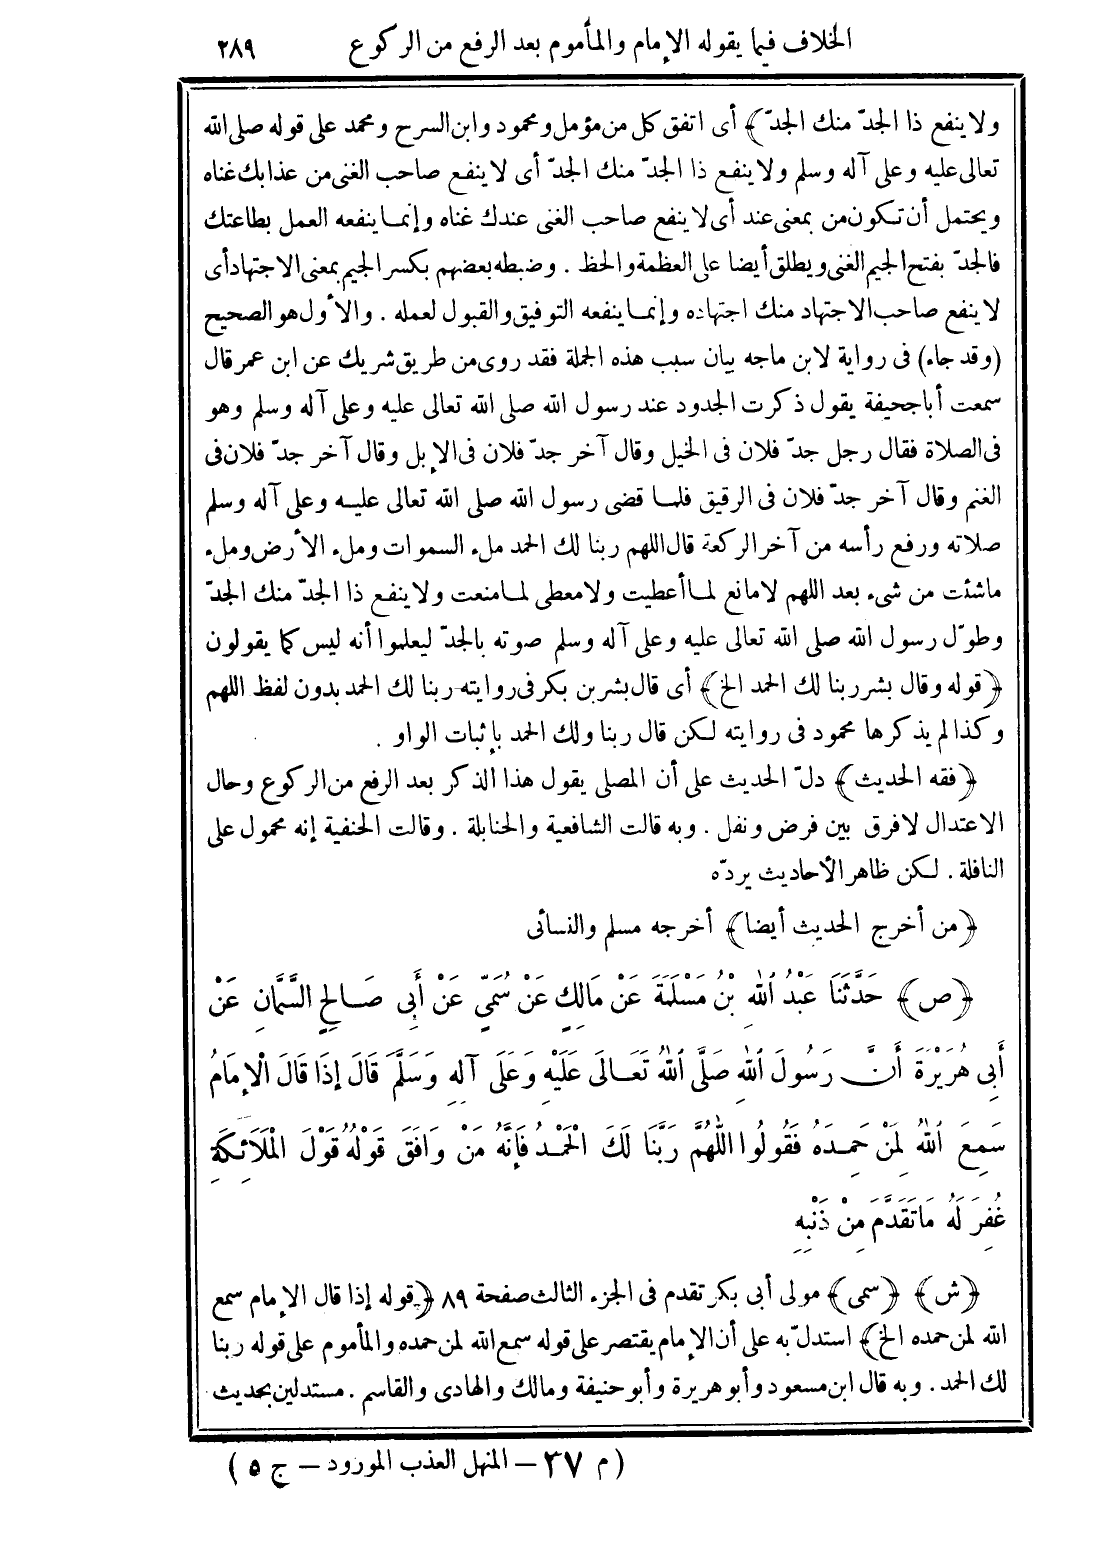 الخلاف فيما يقوله الإمام والمأموم بعد الرفع من الركوع ٢٨٩
ولا ينفع ذا الجدّ منك الجدّ﴾ أى اتفق كل من مؤمل ومحمود وابن السرح ومحمد على قوله صلى الله
تعالى عليه وعلى آله وسلم ولا ينفع ذا الجدّ منك الجدّ أى لا ينفع صاحب الغنى من عذابك غناه
ويحتمل أن تكون من بمعنى عند أى لا ينفع صاحب الغنى عندك غناه وإنما ينفعه العمل بطاعتك
فالجدّ بفتح الجيم الغنى ويطلق أيضا على العظمة والحظ . وضبطه بعضهم بكسر الجيم بمعنى الاجتهاد أى
لا ينفع صاحب الاجتهاد منك اجتهاده وإنما ينفعه التوفيق والقبول لعمله . والأول هو الصحيح
(وقد جاء) فى رواية لابن ماجه بيان سبب هذه الجملة فقد روى من طريق شريك عن ابن عمر قال
سمعت أبا جحيفة يقول ذكرت الجدود عند رسول الله صلى الله تعالى عليه وعلى آله وسلم وهو
فى الصلاة فقال رجل جدّ فلان فى الخيل وقال آخر جدّ فلان فى الإبل وقال آخر جدّ فلان فى
الغنم وقال آخر جدّ فلان فى الرقيق فلما قضى رسول الله صلى الله تعالى عليه وعلى آله وسلم
صلاته ورفع رأسه من آخر الركعة قال اللهم ربنا لك الحمد ملء السموات وملء الأرض وملء
ماشئت من شىء بعد اللهم لامانع لما أعطيت ولا معطى لما منعت ولا ينفع ذا الجدّ منك الجدّ
وطوّل رسول الله صلى الله تعالى عليه وعلى آله وسلم صوته بالجدّ ليعلموا أنه ليس كما يقولون
﴿قوله وقال بشر ربنا لك الحمد الخ﴾ أى قال بشر بن بكر فى روايته ربنا لك الحمد بدون لفظ اللهم
وكذا لم يذكرها محمود فى روايته لكن قال ربنا ولك الحمد بإثبات الواو .
﴿فقه الحديث﴾ دلّ الحديث على أن المصلى يقول هذا الذكر بعد الرفع من الركوع وحال
الاعتدال لا فرق بين فرض ونفل . وبه قالت الشافعية والحنابلة . وقالت الحنفية إنه محمول على
النافلة . لكن ظاهر الأحاديث يردّه
﴿من أخرج الحديث أيضا﴾ أخرجه مسلم والنسائى
﴿ص﴾ حَدَّثَنَا عَبْدُ اللهِ بْنُ مَسْلَمَةَ عَنْ مَالِكٍ عَنْ سُمَىٍّ عَنْ أَبِى صَالِحٍ السَّمَّانِ عَنْ
أَبِى هُرَيْرَةَ أَنَّ رَسُولَ اللهِ صَلَّى اللهُ تَعَالَى عَلَيْهِ وَعَلَى آلِهِ وَسَلَّمَ قَالَ إِذَا قَالَ الْإِمَامُ
سَمِعَ اللهُ لِمَنْ حَمِدَهُ فَقُولُوا اللّٰهُمَّ رَبَّنَا لَكَ الْحَمْدُ فَإِنَّهُ مَنْ وَافَقَ قَوْلُهُ قَوْلَ الْمَلَائِكَةِ
غُفِرَ لَهُ مَا تَقَدَّمَ مِنْ ذَنْبِهِ
﴿ش﴾ ﴿سمى﴾ مولى أبى بكر تقدم فى الجزء الثالث صفحة ٨٩ ﴿قوله إذا قال الإمام سمع
الله لمن حمده الخ﴾ استدلّ به على أن الإمام يقتصر على قوله سمع الله لمن حمده والمأموم على قوله ربنا
لك الحمد . وبه قال ابن مسعود وأبو هريرة وأبو حنيفة ومالك والهادى والقاسم . مستدلين بحديث
(م ٣٧ – المنهل العذب المورود – ج ٥)